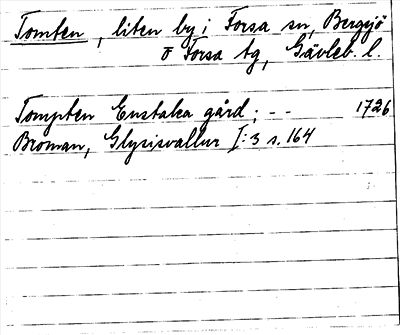 Tomten, liten by i Forsa sn, Bergsjö
o Forsa tg, Gävleb. l.
Tompten Enstaka gård; - - 1726
Broman, Glysisvallur I:3 s. 164